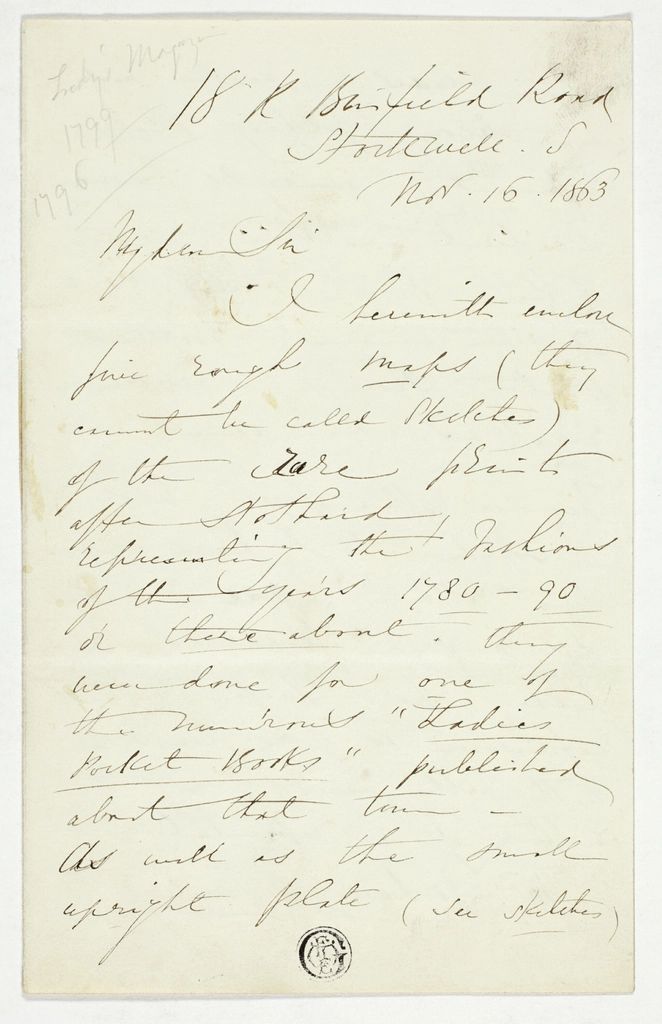 Lady's Magazine
1799
1796
18 R Binfield Road
Stockwell. S
Nov. 16. 1863
My dear Sir
I herewith enclose
five rough maps (they
cannot be called Sketches)
of the rare prints
after Stothard,
representing the Fashions
of the years 1780 - 90
or thereabout. They
were done for one of
the numerous "Ladies
Pocket Books" published
about that time -
As well as the small
upright plate (see sketches)